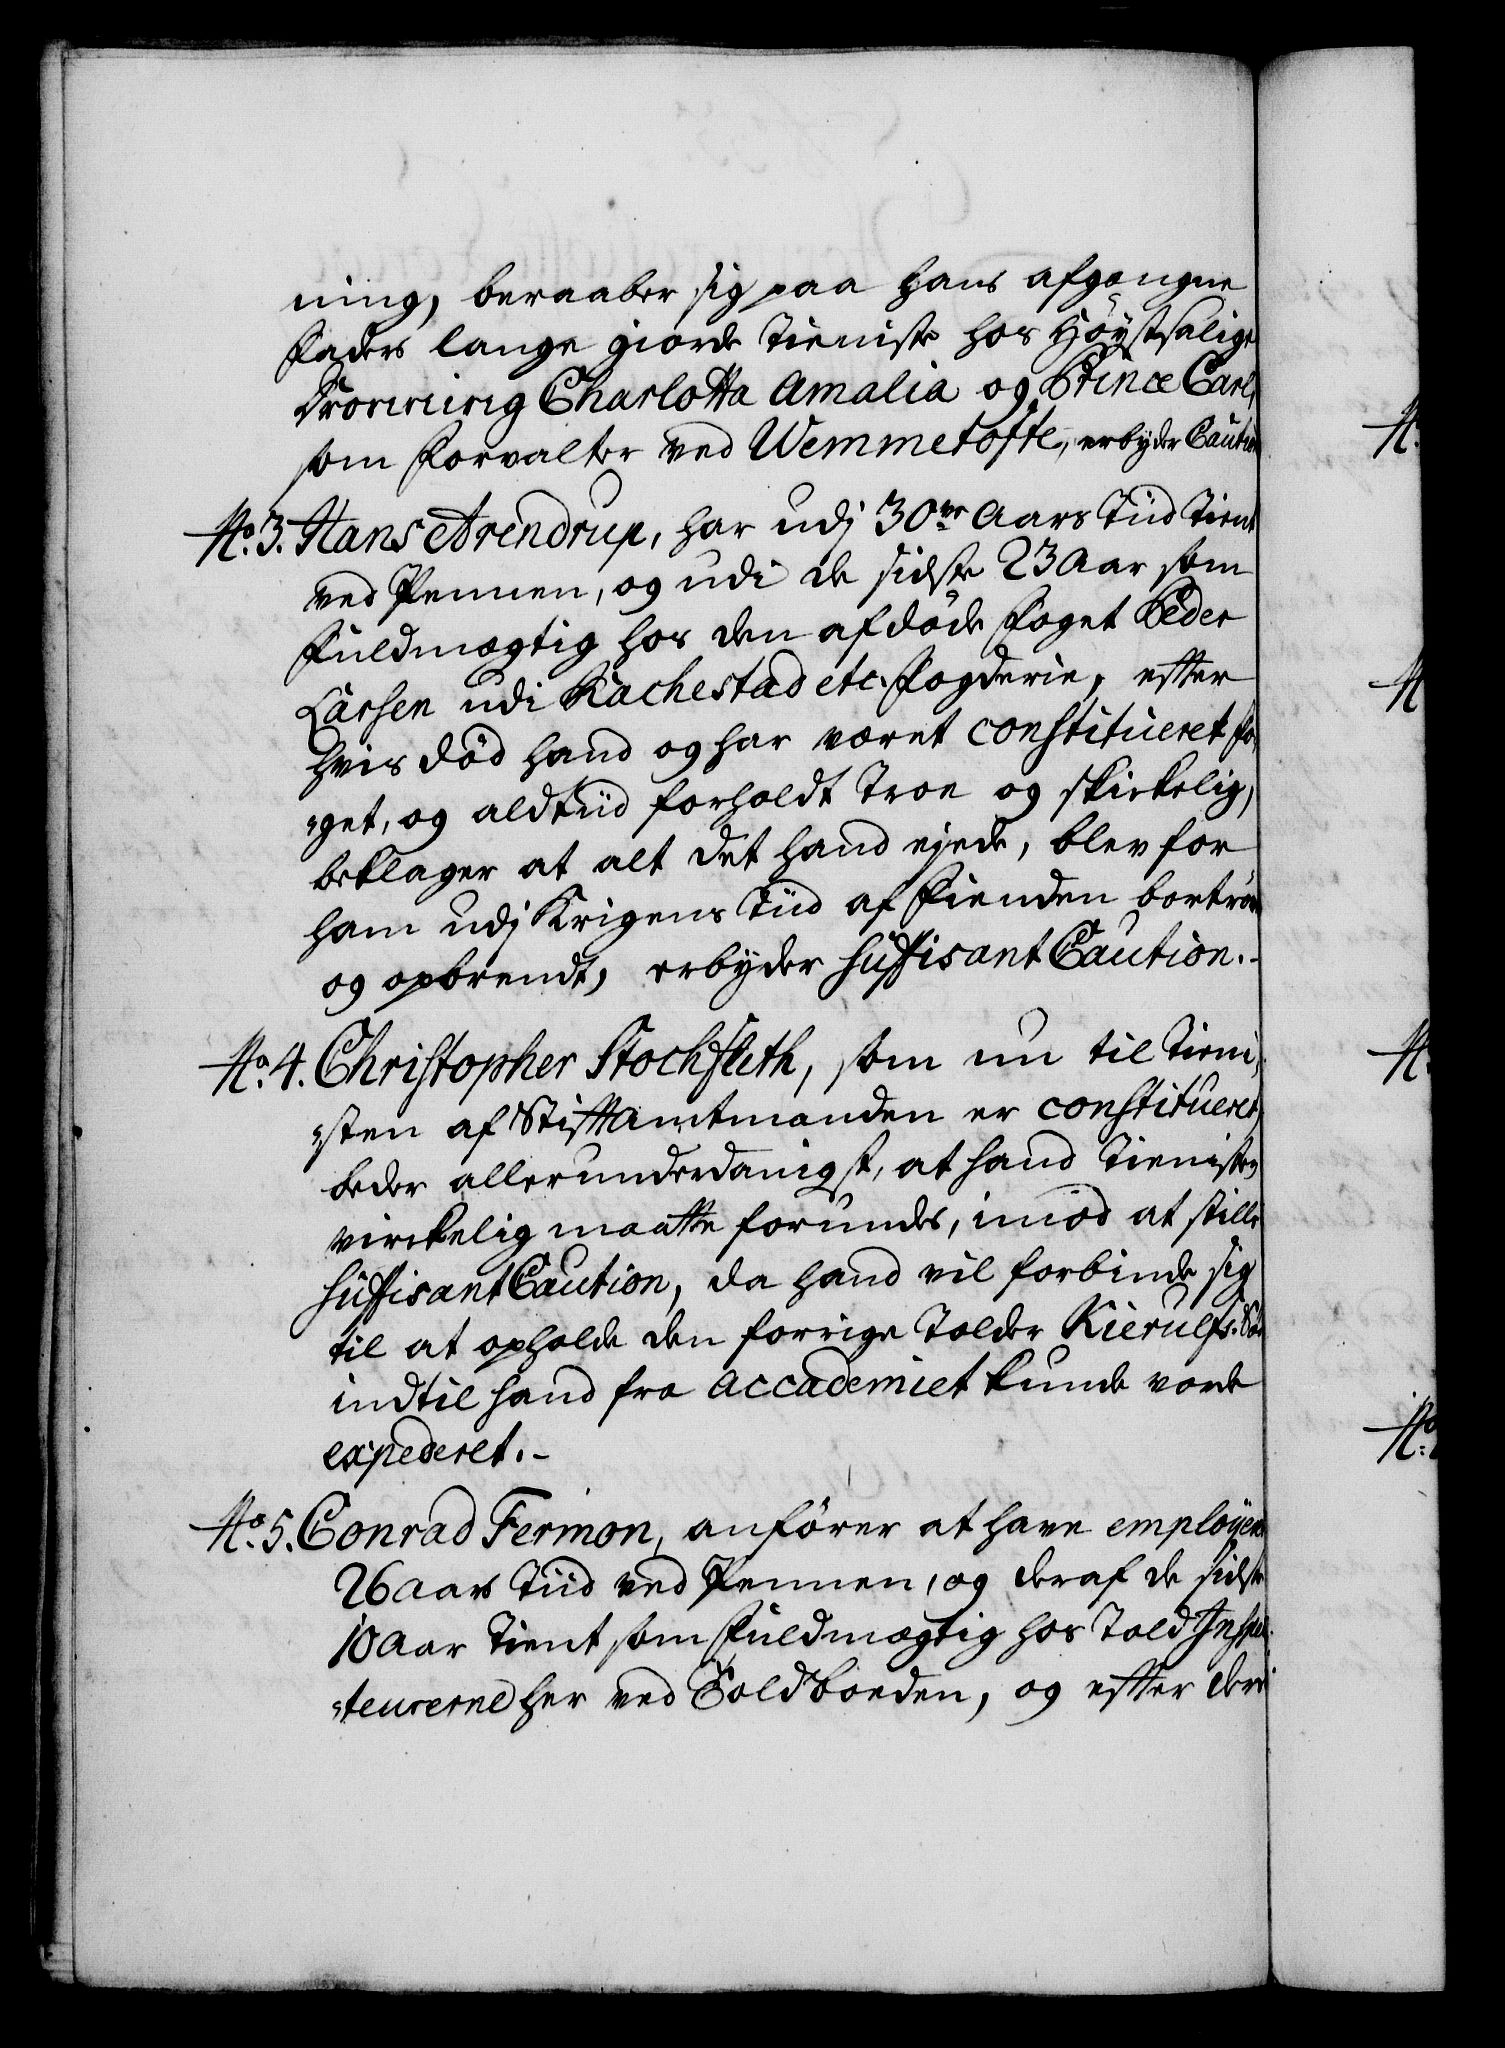 ning, beraaber sig paa hans afgangne
Faders lange giorde Tieniste hos Höystsalige
Dronning Charlotta Amalia og Prince Carl,
som Forvalter ved Wemmetofte, erbyder Caution
No. 3. Hans Arendrup, har udj 30ve Aars Tiid Tient
ved Pennen, og udi de sidste 23 Aar som
Fuldmægtig hos den afdöde Foget Peder
Larsen udi Rachestad etc. Fogderie, efter
hvis död hand og har været constitueret Fo-
"get, og aldtiid forholdt Troe og skickelig,
beklager at alt det hand ejede, blev for
ham udj Krigens Tiid af Fienden bortröv
og opbrendt, erbyder suffisant Caution.-
No. 4. Christopher Stochfleth, som nu til Tieni-
"sten af Stiftamtmanden er constitueret,
beder allerunderdanigst, at hand Tienisten
virckelig maatte forundes, imod at stille
suffisant Caution, da hand vil forbinde sig
til at opholde den forrige Tolder Kierulfs Sön
indtil hand fra Accademiet kunde vorde
expederet.-
No. 5. Conrad Fermon, anförer at have employeret
26 Aars Tiid ved Pennen, og deraf de sidste
10 Aar Tient som Fuldmægtig hos Told Inspec-
"teurerne her ved Toldboeden, og efter deri